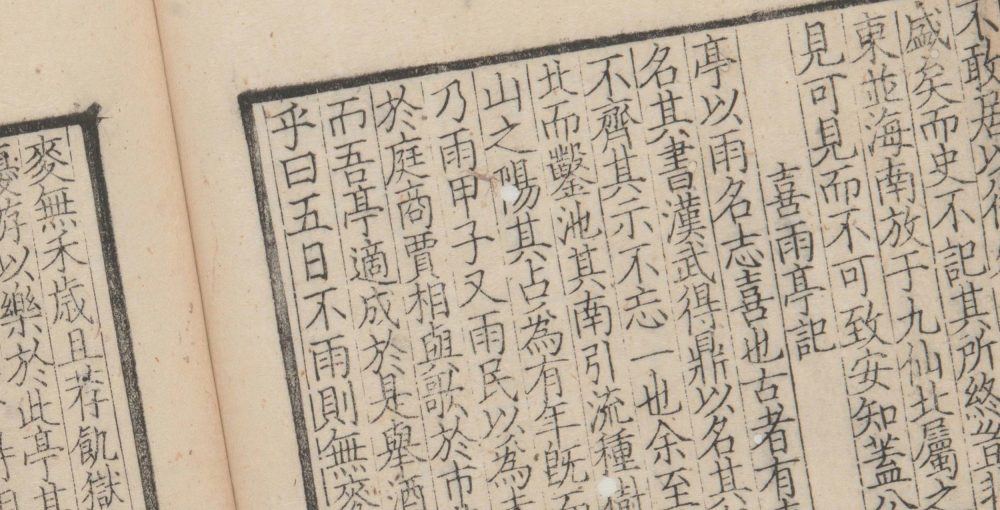 不敢居以
盛矣而史不記其所終豈非
東並海南放于九仙北屬之
見可見而不可致安知蓋公
喜雨亭記
亭以雨名志喜也古者有
名其書漢武得鼎以名其
不齊其示不忘一也余至
北而鑿池其南引流種樹
山之陽其占為有年既而
乃雨甲子又雨民以為未
於庭商賈相與歌於市
而吾亭適成於是舉酒
乎曰五日不雨則無麥
麥無禾歲且荐飢獄
優游以樂於此亭其